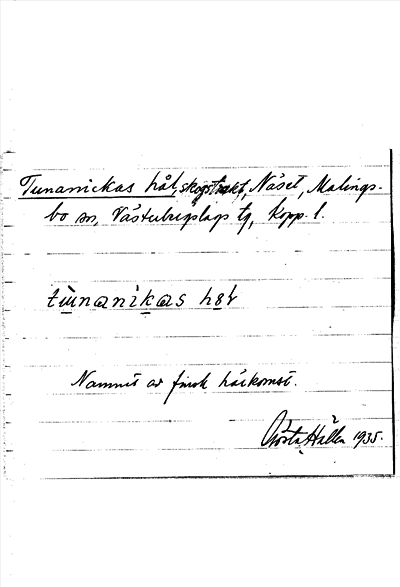 Tunanickas hål, skogstrakt, Näset, Malings-
bo sn, Västerbergslags tg, Kopp. l.
tùnanikas hal
Namnet av finsk härkomst.
Gösta Hallén 1935.